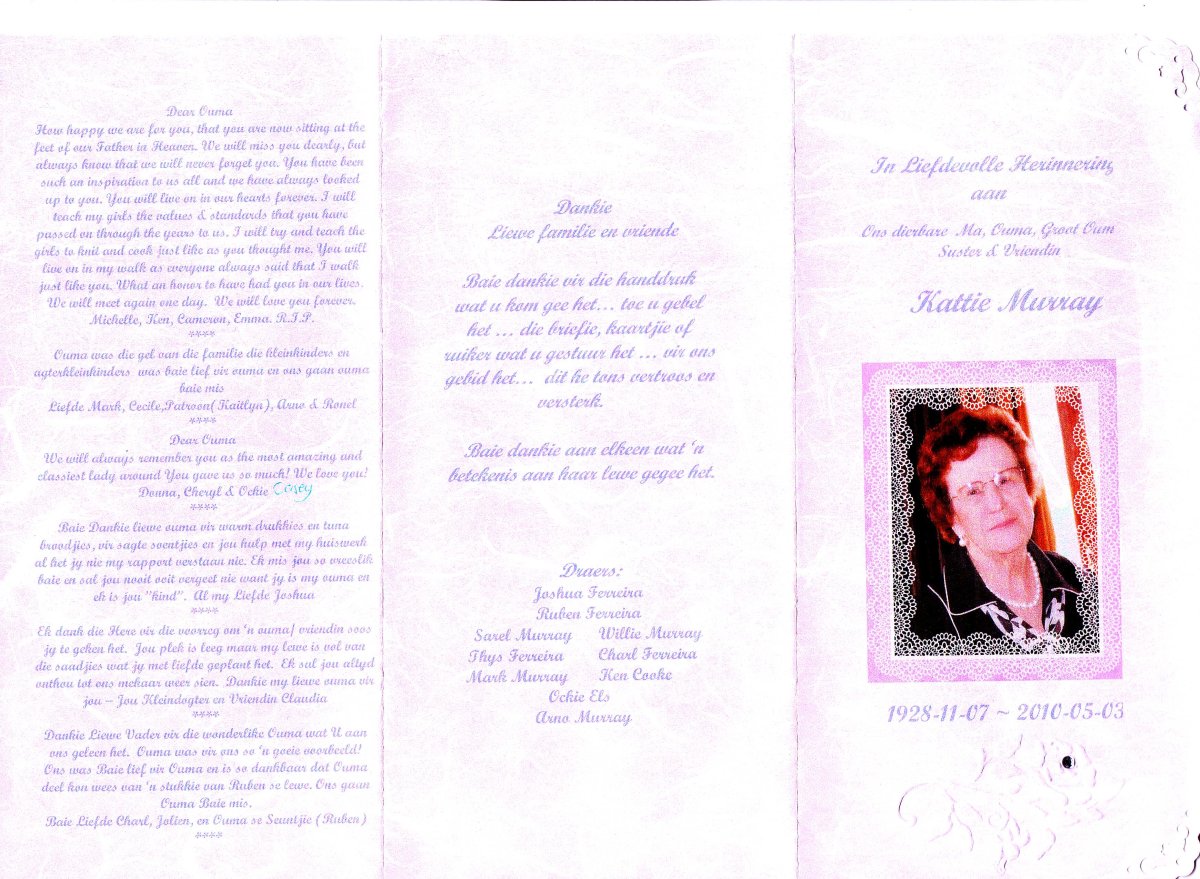 Dear Ouma
How happy we are for you, that you are now sitting at the
feet of our Father in Heaven. We will miss you dearly, but
always know that we will never forget you. You have been
such an inspiration to us all and we have always looked
up to you. You will live on in our hearts forever. I will
teach my girls the values & standards that you have
passed on through the years to us. I will try and teach the
girls to knit and cook just like as you thought me. You will
live on in my walk as everyone always said that I walk
just like you. What an honor to have had you in our lives.
We will meet again one day. We will love you forever.
Michelle, Ken, Cameron, Emma. R.I.P.
****
Ouma was die gel van die familie die kleinkinders en
agterkleinkinders was baie lief vir ouma en ons gaan ouma
baie mis
Liefde Mark, Cecile,Patroon( Kaitlyn), Arno & Ronel
****
Dear Ouma
We will always remember you as the most amazing and
classiest lady around You gave us so much! We love you!
Donna, Cheryl & Ockie Casey
****
Baie Dankie liewe ouma vir warm drukkies en tuna
broodjies, vir sagte soentjies en jou hulp met my huiswerk
al het jy nie my rapport verstaan nie. Ek mis jou so vreeslik
baie en sal jou nooit ooit vergeet nie want jy is my ouma en
ek is jou "kind". Al my Liefde Joshua
****
Ek dank die Here vir die voorreg om 'n ouma/ vriendin soos
jy te geken het. Jou plek is leeg maar my lewe is vol van
die saadjies wat jy met liefde geplant het. Ek sal jou altyd
onthou tot ons mekaar weer sien. Dankie my liewe ouma vir
jou – Jou Kleindogter en Vriendin Claudia
****
Dankie Liewe Vader vir die wonderlike Ouma wat U aan
ons geleen het. Ouma was vir ons so 'n goeie voorbeeld!
Ons was Baie lief vir Ouma en is so dankbaar dat Ouma
deel kon wees van 'n stukkie van Ruben se lewe. Ons gaan
Ouma Baie mis.
Baie Liefde Charl, Jolien, en Ouma se Seuntjie (Ruben)
****
Dankie
Liewe familie en vriende
Baie dankie vir die handdruk
wat u kom gee het... toe u gebel
het ... die briefie, kaartjie of
ruiker wat u gestuur het ... vir ons
gebid het... dit he tons vertroos en
versterk.
Baie dankie aan elkeen wat 'n
betekenis aan haar lewe gegee het.
Draers:
Joshua Ferreira
Ruben Ferreira
Sarel Murray Willie Murray
Thys Ferreira Charl Ferreira
Mark Murray Ken Cooke
Ockie Els
Arno Murray
In Liefdevolle Herinnering
aan
Ons dierbare Ma, Ouma, Groot Oum
Suster & Vriendin
Kattie Murray
1928-11-07 ~ 2010-05-03